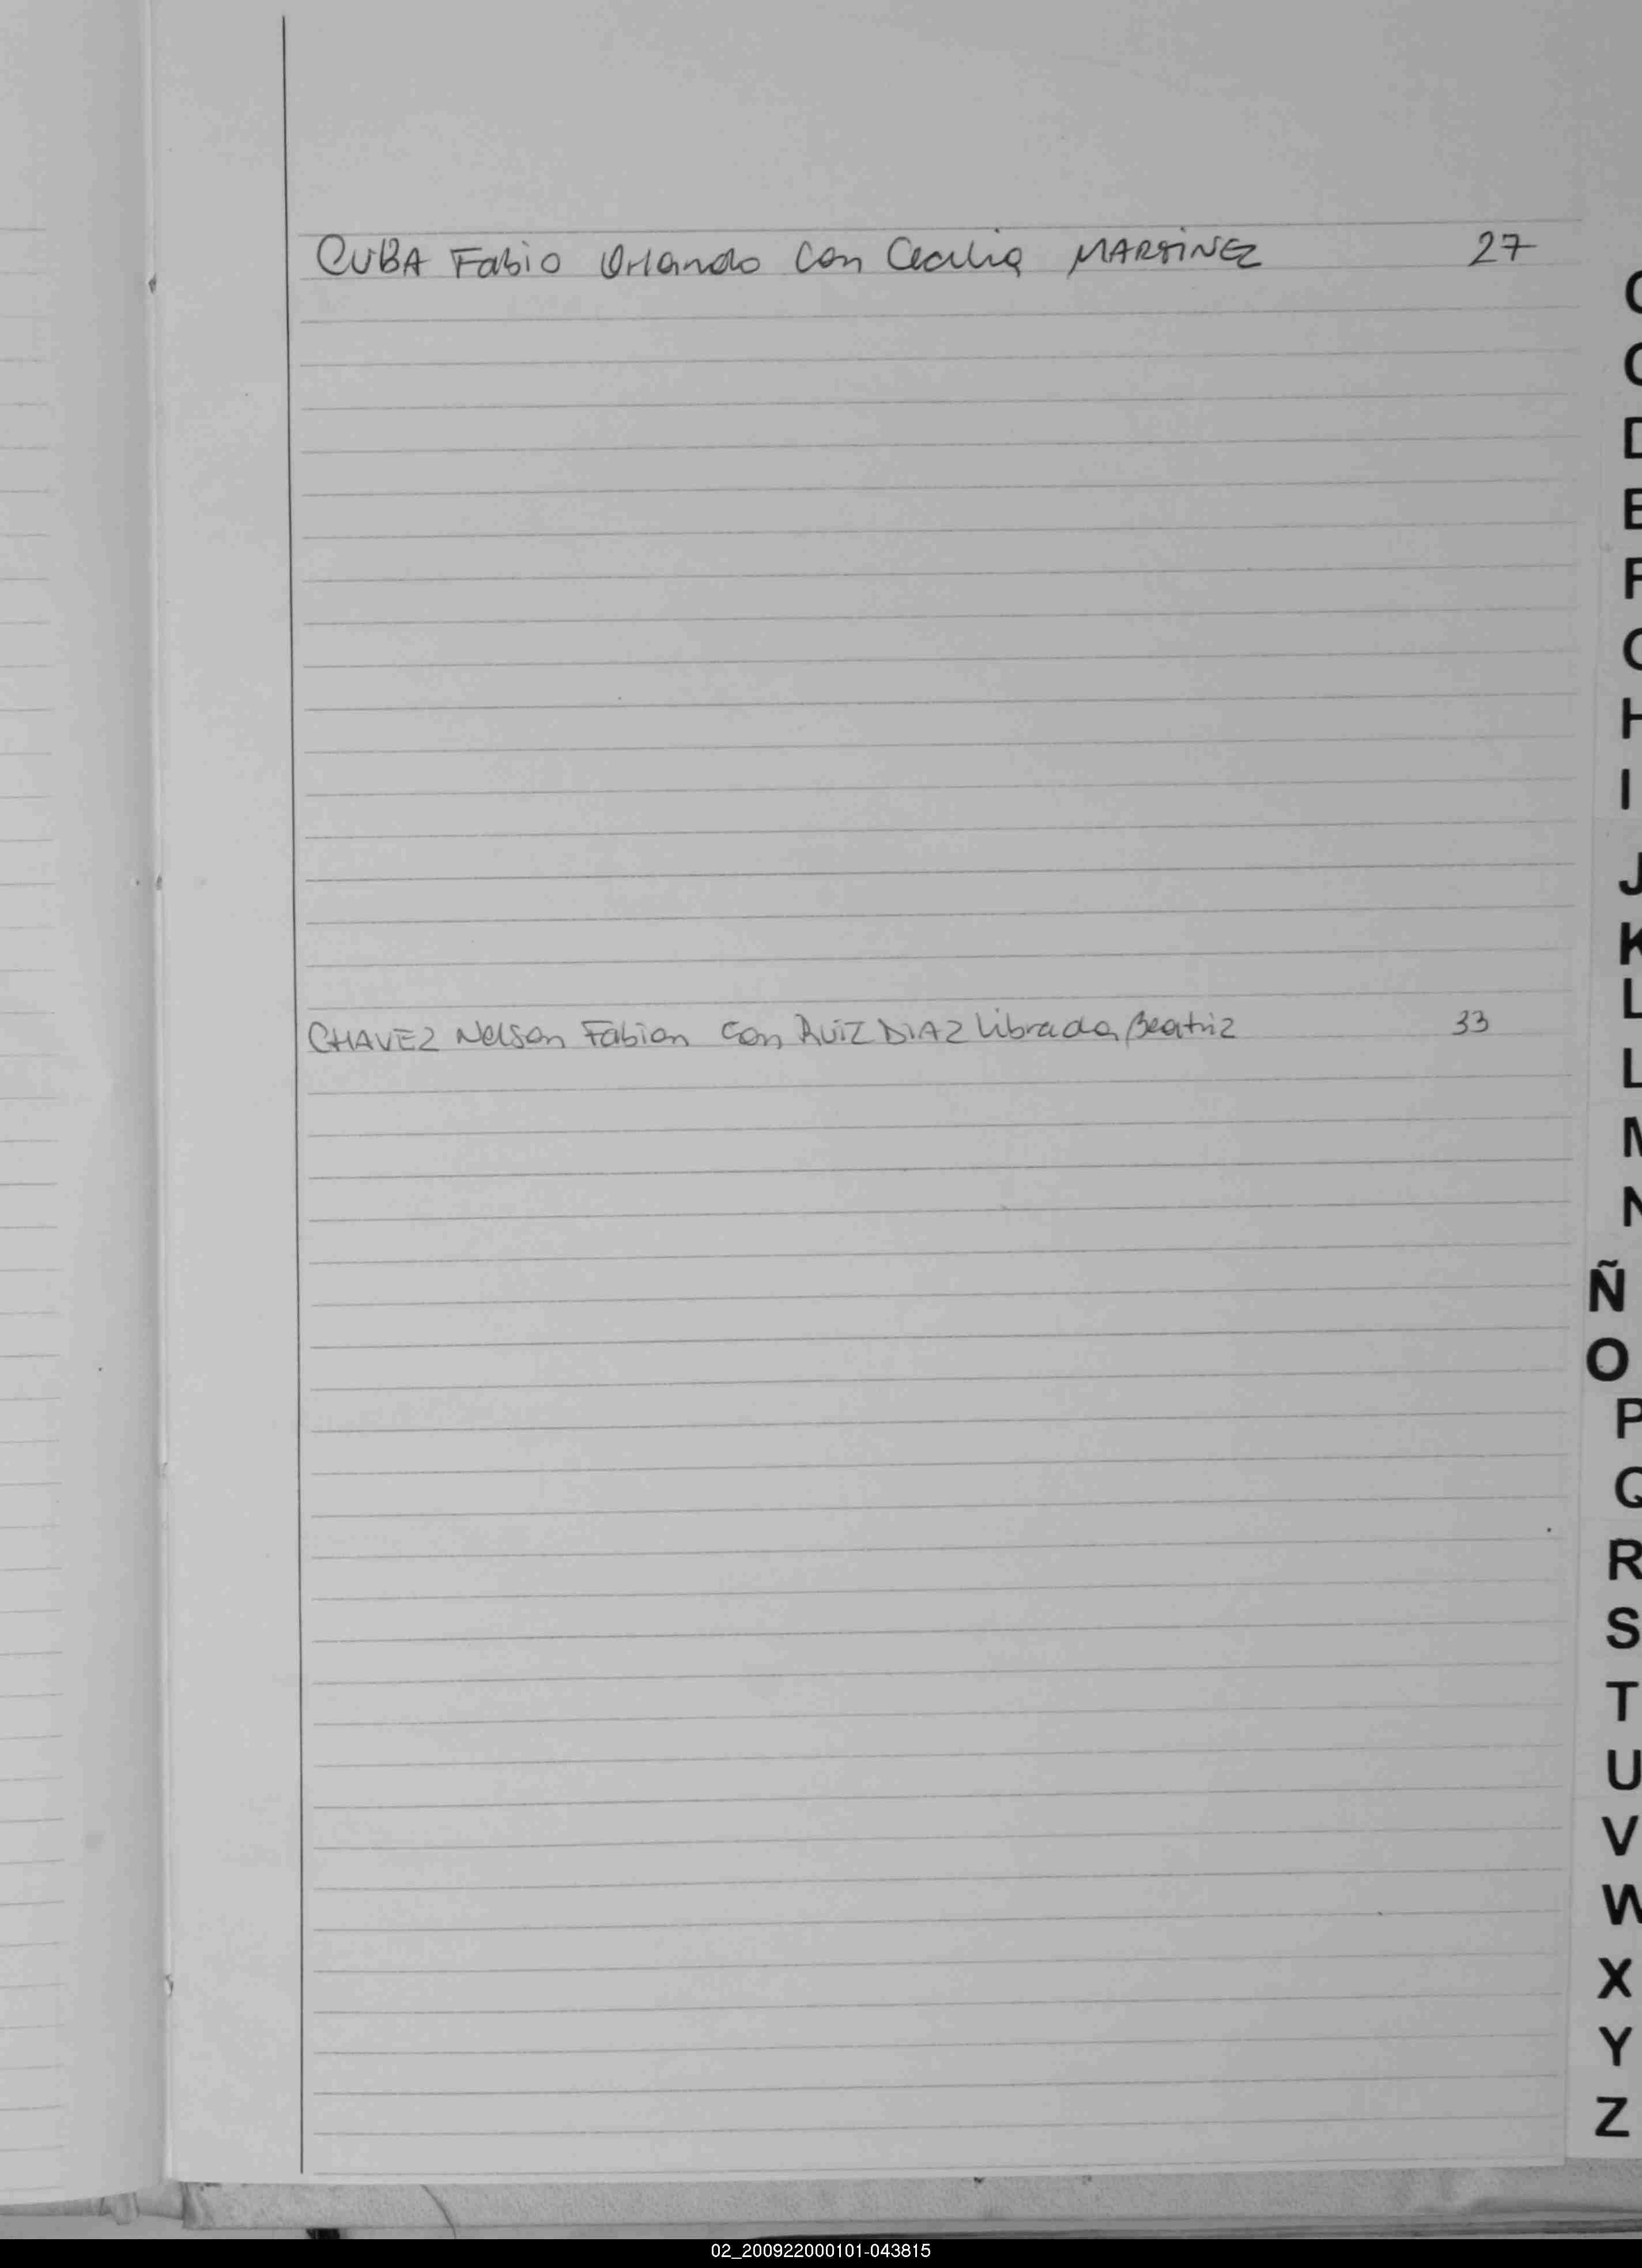 CUBA Fabio Orlando con Cecilia MARTINEZ 27
CHAVEZ Nelson Fabian con RUIZ DIAZ Librada Beatriz 33
C
C
D
E
F
G
H
I
J
K
L
L
M
N
Ñ
O
P
Q
R
S
T
U
V
W
X
Y
Z
02_200922000101-043815